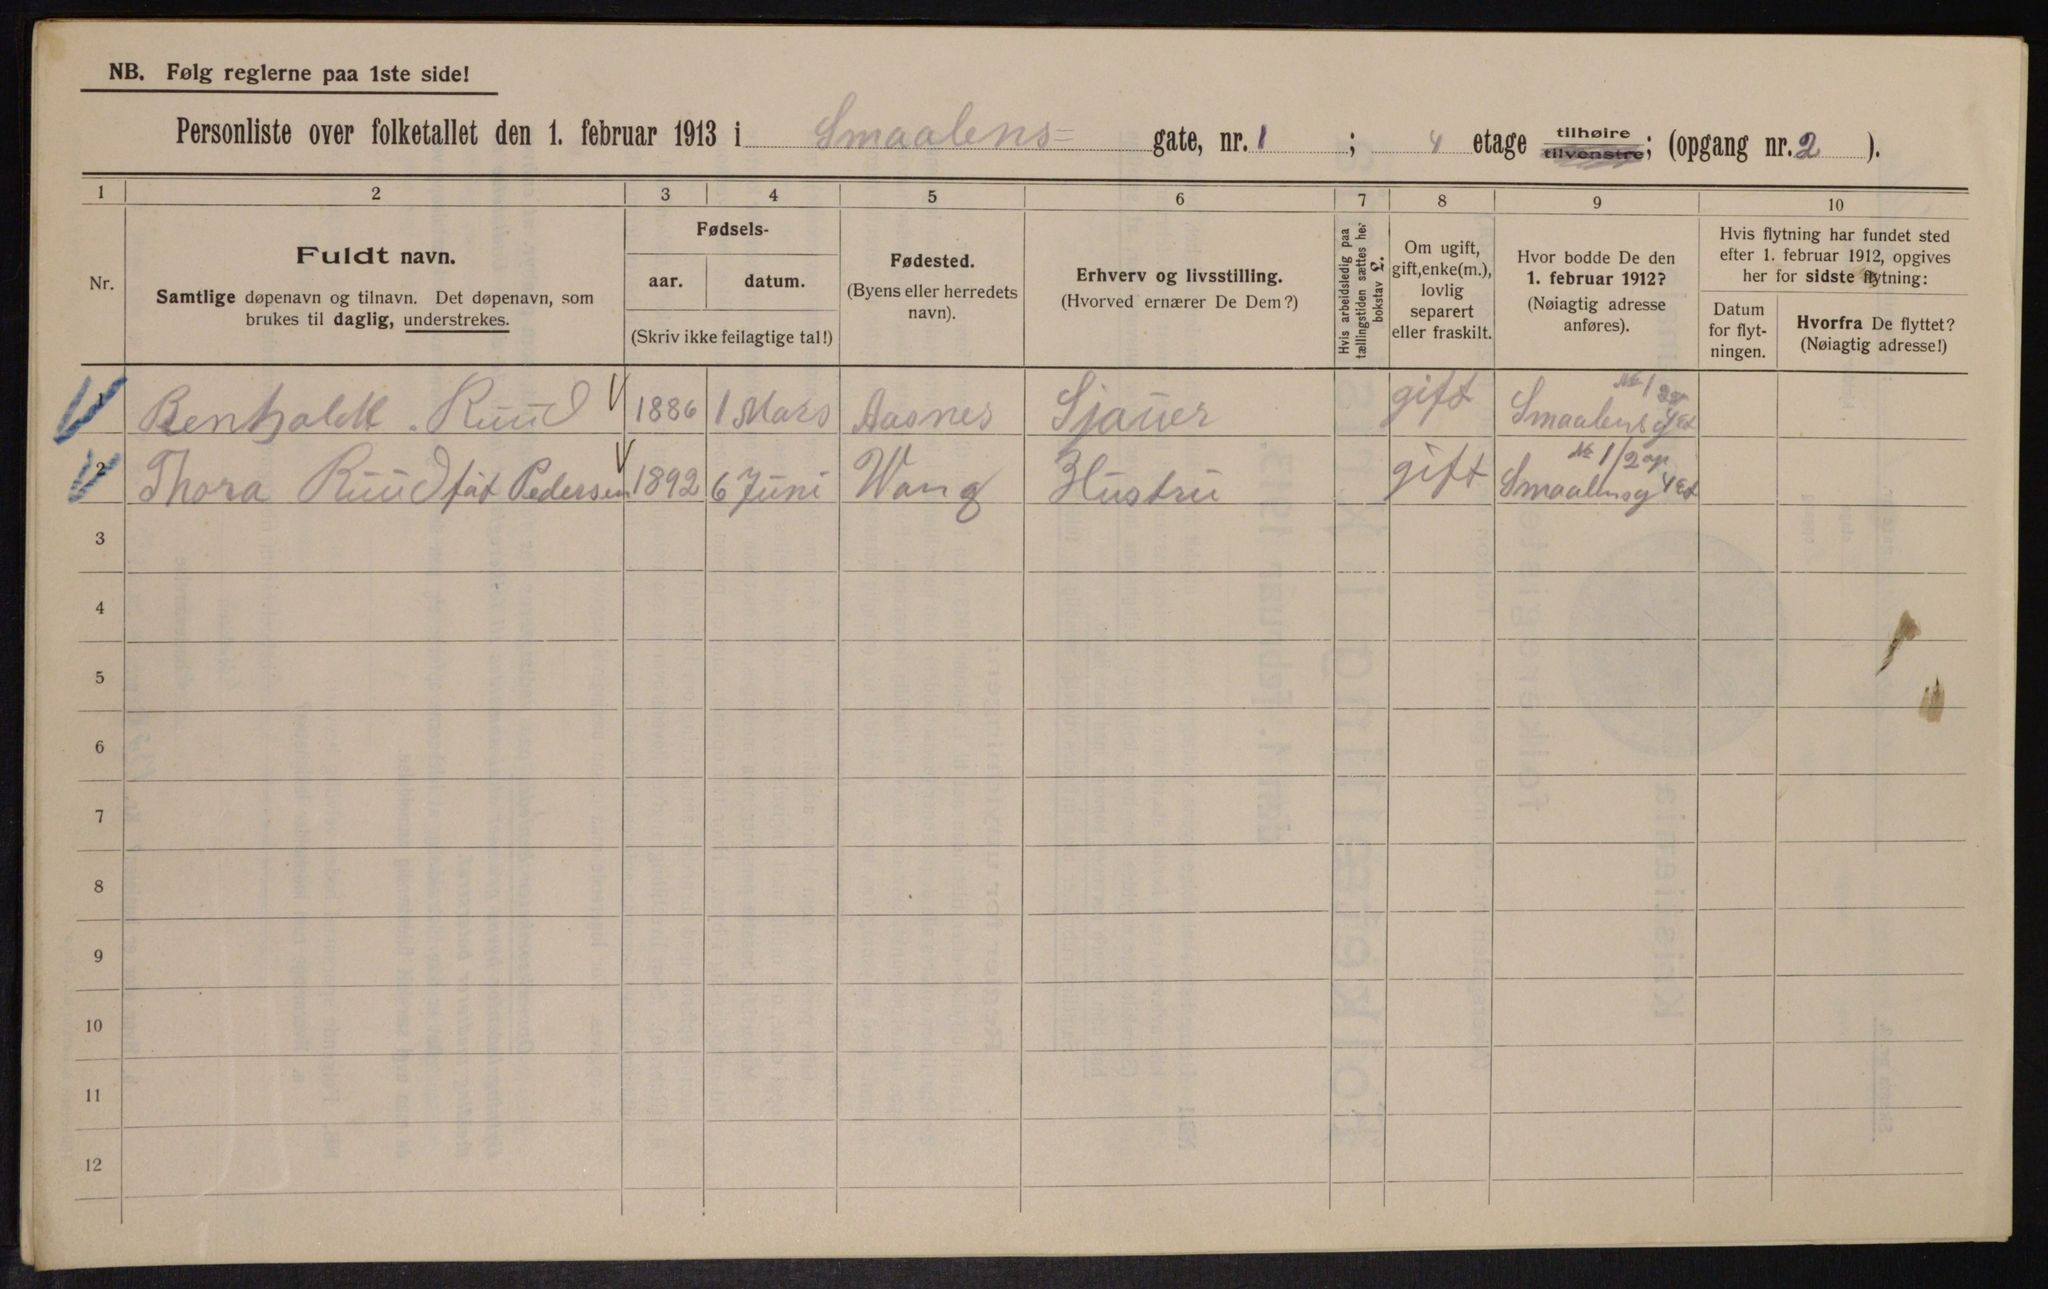 NB. Følg reglerne paa 1ste side!
Personliste over folketallet den 1. februar 1913 i Smaalens= gate, nr. 1 ; 4 etage tilhøire tilvenstre; (opgang nr. 2 ).
1 2 3 4 5 6 7 8 9 10
Nr.
Fuldt navn.
Samtlige døpenavn og tilnavn. Det døpenavn, som
brukes til daglig, understrekes.
Fødsels-
aar. datum.
(Skriv ikke feilagtige tal!)
Fødested.
(Byens eller herredets
navn).
Erhverv og livsstilling.
(Hvorved ernærer De Dem?)
Hvis arbeidsledig paa
tællingstiden sættes her
bokstav L.
Om ugift,
gift,enke(m.),
lovlig
separert
eller fraskilt.
Hvor bodde De den
1. februar 1912?
(Nøiagtig adresse
anføres).
Hvis flytning har fundet sted
efter 1. februar 1912, opgives
her for sidste flytning:
Datum
for flyt-
ningen.
Hvorfra De flyttet?
(Nøiagtig adresse!)
1 Ruud 1886 1 Mars Aasnes Sjauer gift Smaalensg 4 Et
2 Thora Ruud føt Pedersen 1892 6 Juni Wang Hustru gift Smaalensg 4 Et
3
4
5
6
7
8
9
10
11
12